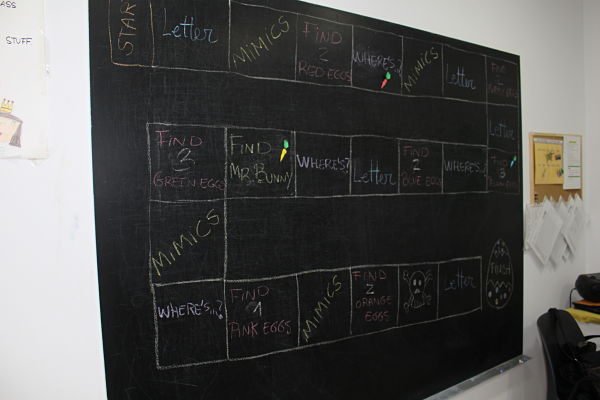 ASS
STUFF
START
Letter
MIMICS
FIND
2
RED EGGS
WHERE'S..?
MIMICS
Letter
FIND
Letter
FIND
3
GREEN EGGS
FIND
MR. BUNNY
WHERE'S?
Letter
FIND
2
BLUE EGGS
WHERE'S..?
FIND
3
MIMICS
WHERE'S...?
FIND
1
PINK EGGS
MIMICS
FIND
2
ORANGE
EGGS
Letter
FINISH